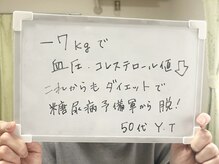 -7kgで
血圧.コレステロール値↓
これからもダイエットで
糖尿病予備軍から脱!
50代 Y.T